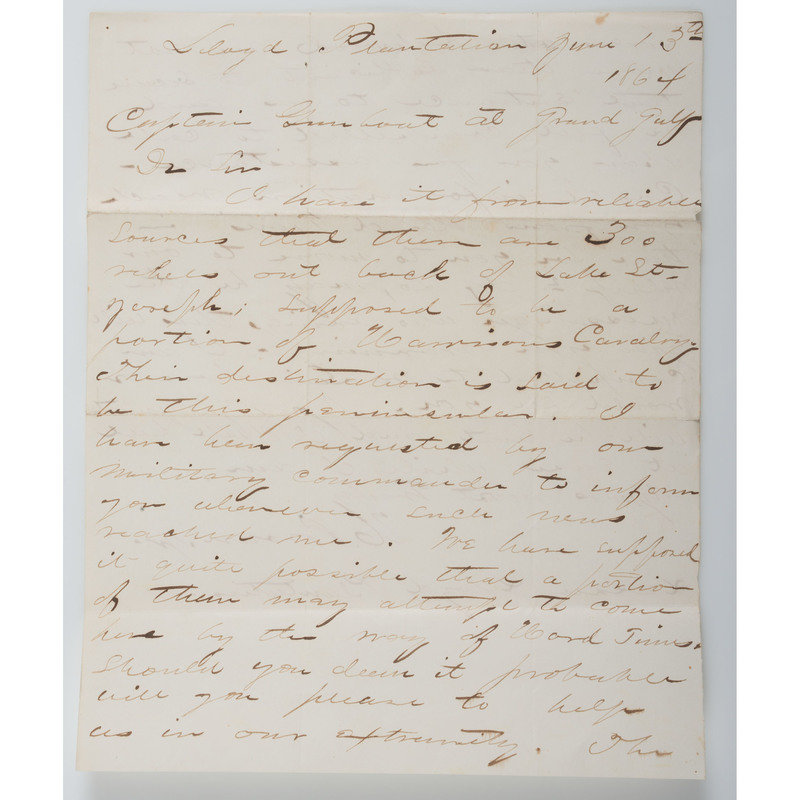 Lloyd Plantation June 13th
1864
Captain Gunboat at Grand Gulf
Dr Sir
I have it from reliable
sources that there are 300
rebels out back of Lake St.
Joseph; supposed to be a
portion of Harrisons Cavalry.
Their destination is said to
be this peninsular. I
have been requested by our
military commander to inform
you whenever such news
reached me. We have supposed
it quite possible that a portion
of them may attempt to come
here by the way of Hard Times.
Should you deem it probable
will you please to help
us in our extremity. The